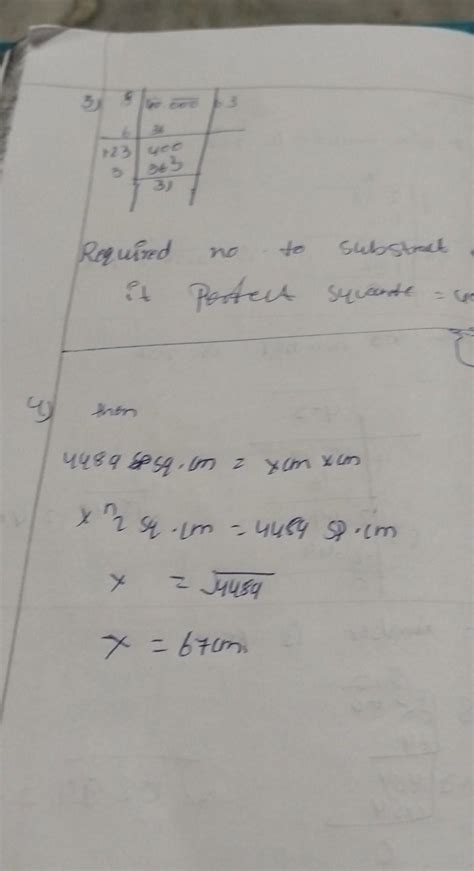 3)
6 36
123 400
3 363
31
Required no to substract
it Perfect square =
4) then
4489 sq.cm = xcm xcm
x² sq.cm = 4489 sq.cm
x = √4489
x = 67cm